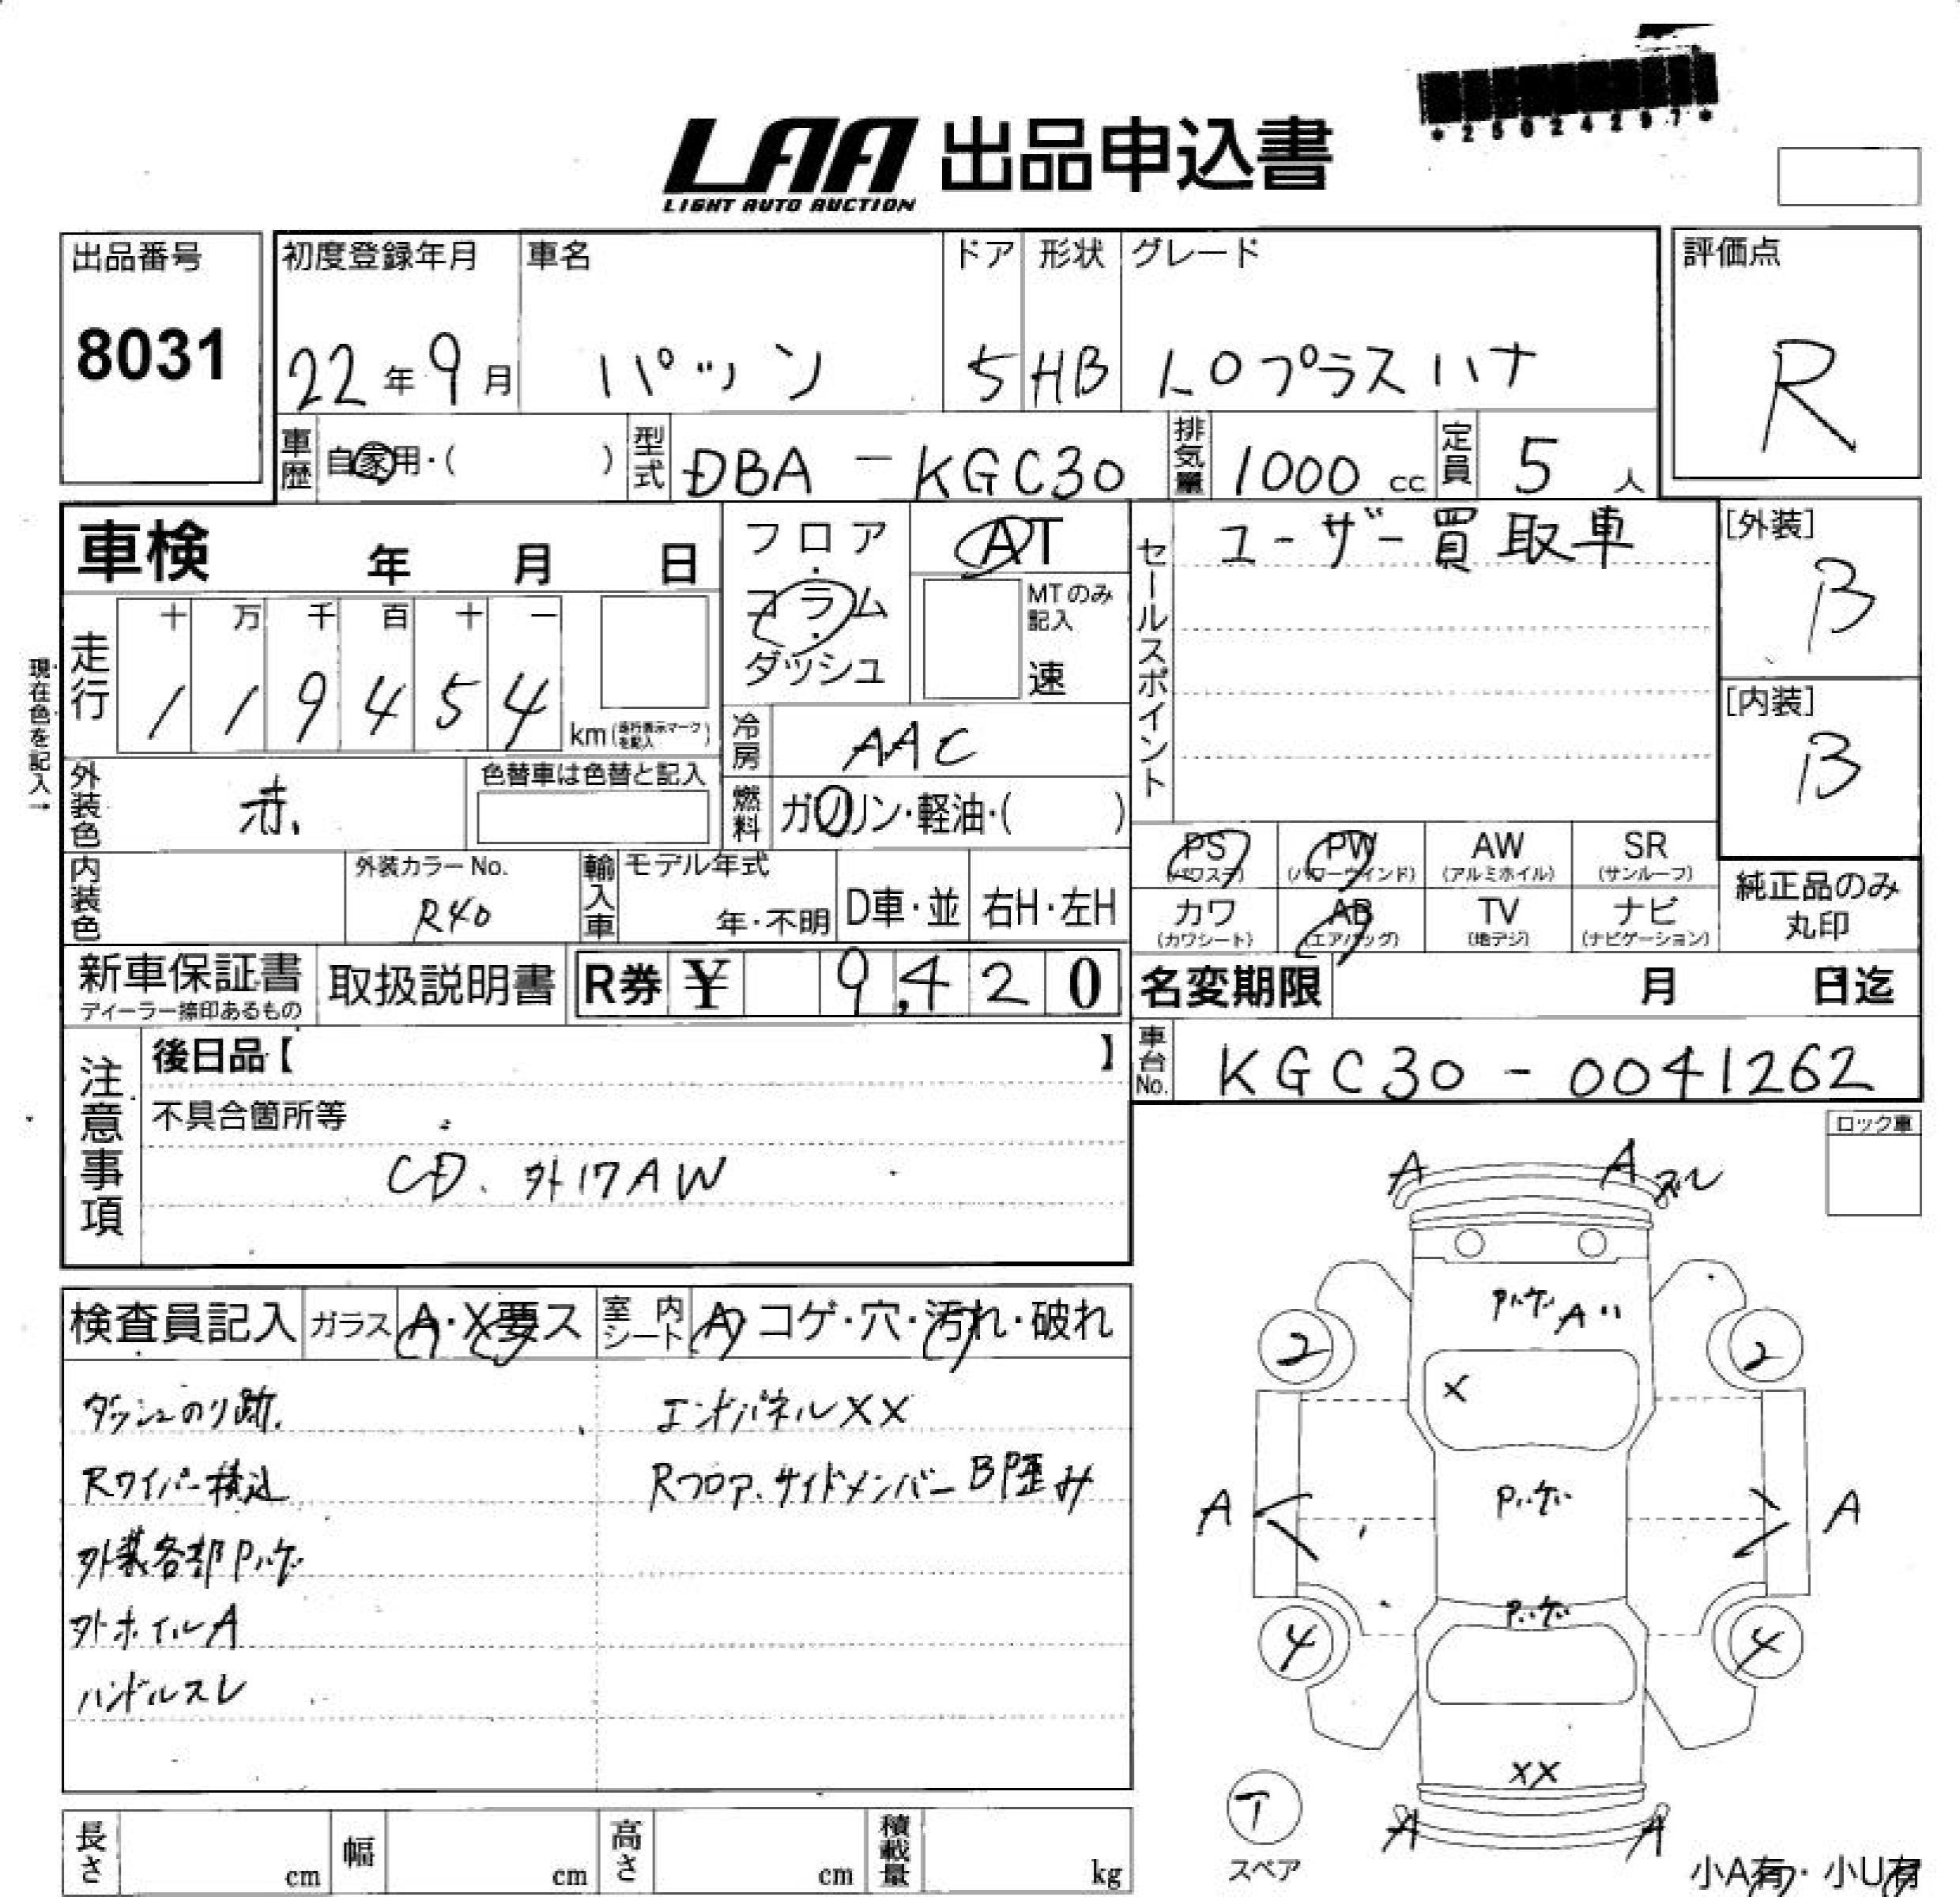 LAA 出品申込書
LIGHT AUTO AUCTION
*25024297*
出品番号
8031
初度登録年月
22年9月
車名
パッソ
ドア
5
形状
HB
グレード
1.0プラスハナ
評価点
R
車歴 自家用・( )
型式 DBA-KGC30
排気量 1000cc
定員 5人
車検 年 月 日
フロア・コラム・ダッシュ
AT
MTのみ記入
速
セールスポイント
ユーザー買取車
[外装]
B
[内装]
B
現在色を記入→
走行
十 万 千 百 十 一
1 1 9 4 5 4
km(走行表示マークを記入)
冷房 AAC
燃料 ガソリン・軽油・( )
外装色 赤
色替車は色替と記入
内装色
外装カラーNo.
R40
輸入車
モデル年式
年・不明
D車・並
右H・左H
PS (パワステ)
PW (パワーウインド)
AW (アルミホイル)
SR (サンルーフ)
カワ (カワシート)
AB (エアバッグ)
TV (地デジ)
ナビ (ナビゲーション)
純正品のみ
丸印
新車保証書
ディーラー捺印あるもの
取扱説明書
R券 ¥ 9,420
名変期限 月 日迄
車台No. KGC30-0041262
注意事項
後日品【 】
不具合箇所等
CD、外17AW
ロック車
検査員記入
ガラス A・X要ス
室内シート A・コゲ・穴・汚れ・破れ
ダッシュのり跡
エンドパネルXX
Rワイパー積込
Rフロア、サイドメンバーB歪み
外装各部Pハゲ
外ホイルA
ハンドルスレ
A
A ズレ
Pハゲ A
2
2
X
A
Pハゲ
A
Pハゲ
4
4
XX
A
A
T
スペア
小A有・小U有
長さ cm
幅 cm
高さ cm
積載量 kg